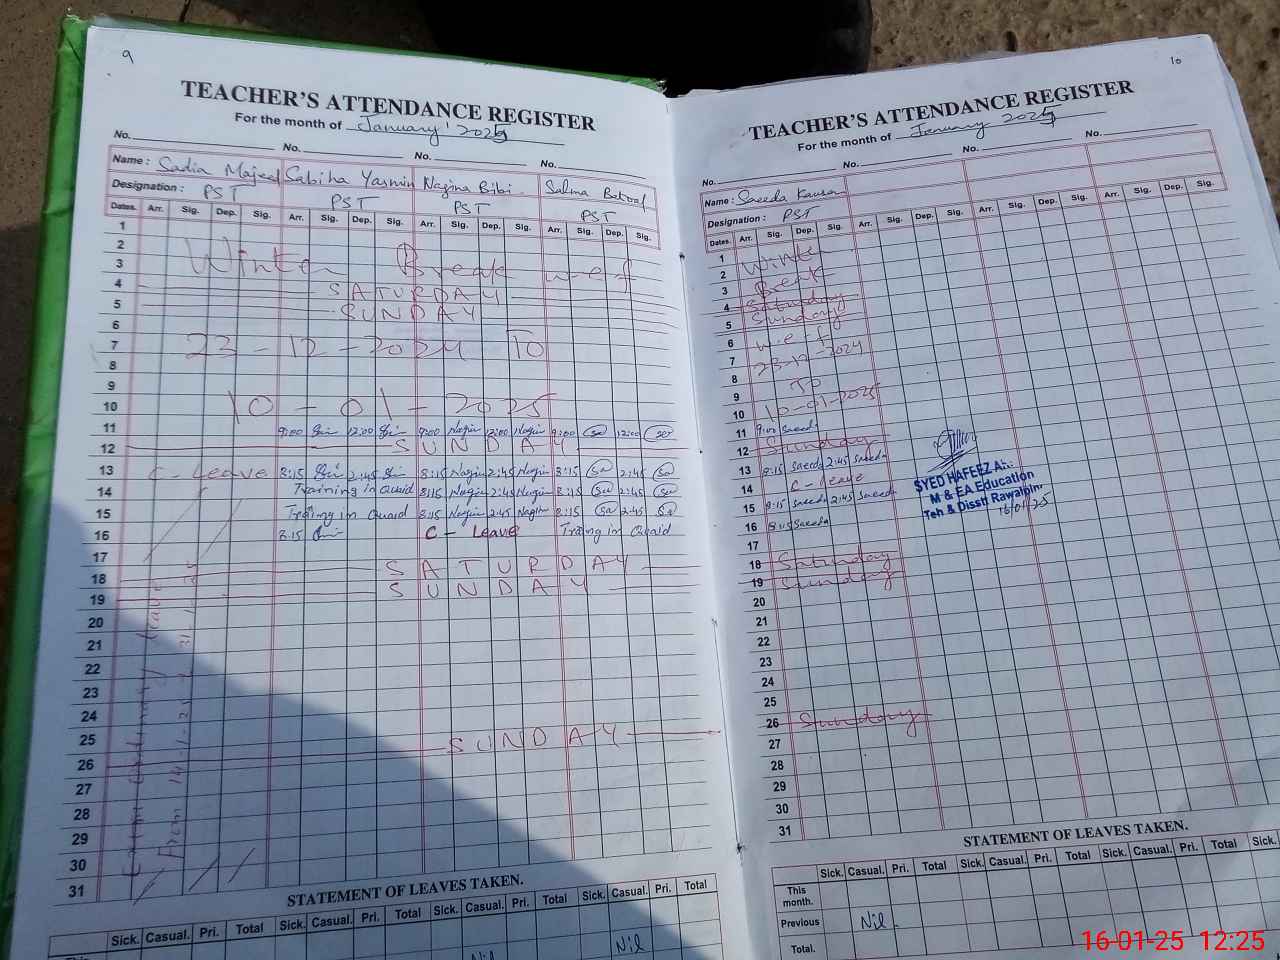 9
TEACHER'S ATTENDANCE REGISTER
For the month of January 2025
No. No. No. No.
Name : Sadia Majeed Sabiha Yasmin Nagina Bibi Salma Batool
Designation : PST PST PST PST
Dates. Arr. Sig. Dep. Sig. Arr. Sig. Dep. Sig. Arr. Sig. Dep. Sig. Arr. Sig. Dep. Sig.
1
2
3 Winter Break w-e-f
4 SATURDAY
5 SUNDAY
6
7 23-12-2024 To
8
9
10 10-01-2025
11 9:00 12:00 9:00 Nagin 12:00 Nagin 9:00 12:00
12 SUNDAY
13 C-Leave 8:15 2:45 8:15 Nagin 2:45 Nagin 8:15 Sa 2:45 Sa
14 Training in Quaid 8:15 Nagin 2:45 Nagin 8:15 Sa 2:45 Sa
15 Traing in Quaid 8:15 Nagin 2:45 Nagin 8:15 Sa 2:45 Sa
16 8:15 C-Leave Traing in Quaid
17
18 SATURDAY
19 SUNDAY
20
21
22
23
24
25
26 SUNDAY
27
28
29
30
31
Leave
From 14-1-25 31-1-25
STATEMENT OF LEAVES TAKEN.
Sick. Casual. Pri. Total Sick. Casual. Pri. Total Sick. Casual. Pri. Total
Nil Nil
10
TEACHER'S ATTENDANCE REGISTER
For the month of January 2025
No. No. No. No.
Name : Saeeda Kausar
Designation : PST
Dates. Arr. Sig. Dep. Sig. Arr. Sig. Dep. Sig. Arr. Sig. Dep. Sig. Arr. Sig. Dep. Sig.
1 Winter
2
3 Break
4 Saturday
5 Sunday
6 w.e.f
7 23-12-2024
8
9 To
10 10-01-2025
11 9:00 Saeeda
12 Sunday
13 8:15 Saeeda 2:45 Saeeda
14 C-leave
15 8:15 Saeeda 2:45 Saeeda
16 8:15 Saeeda
17
18 Saturday
19 Sunday
20
21
22
23
24
25
26 Sunday
27
28
29
30
31
SYED HAFEEZ A
M & EA Education
Teh & Disstt Rawalpin
16/01/25
STATEMENT OF LEAVES TAKEN.
Sick. Casual. Pri. Total Sick. Casual. Pri. Total Sick. Casual. Pri. Total Sick.
This month.
Previous Nil
Total.
16-01-25 12:25